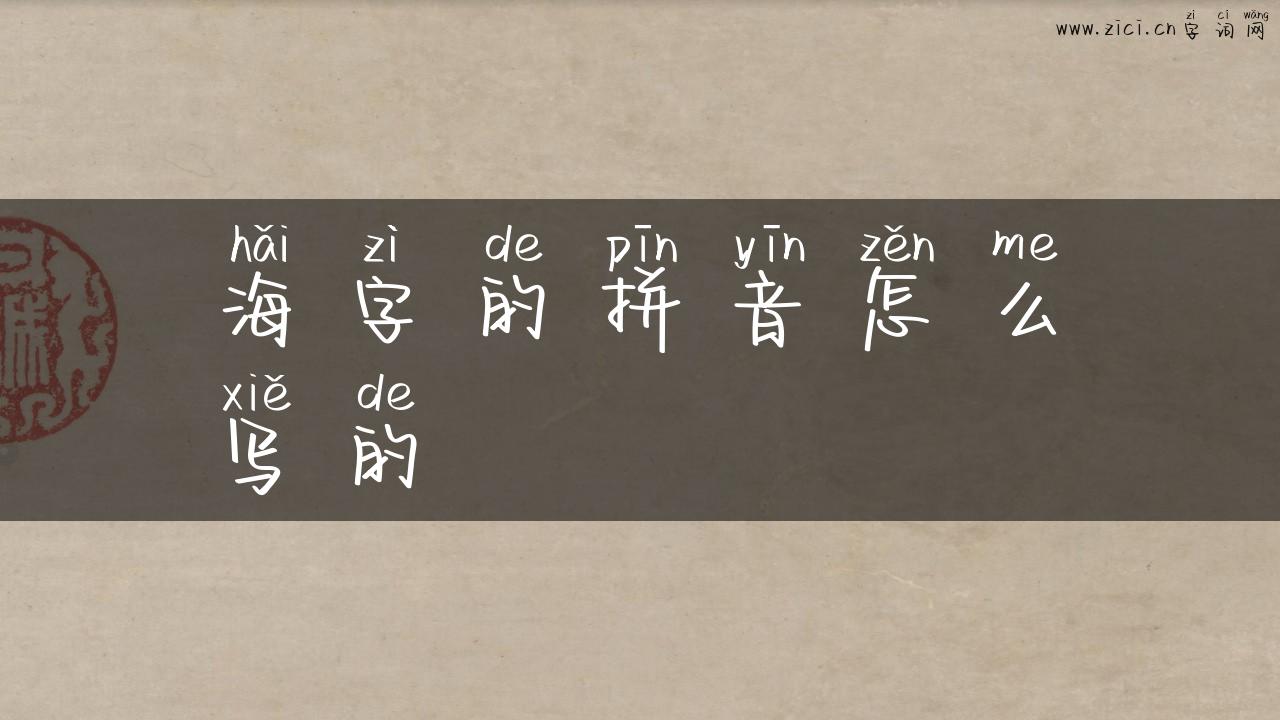 zì cí wǎng
www.zici.cn 字词网
hǎi zì de pīn yīn zěn me
海字的拼音怎么
xiě de
写的